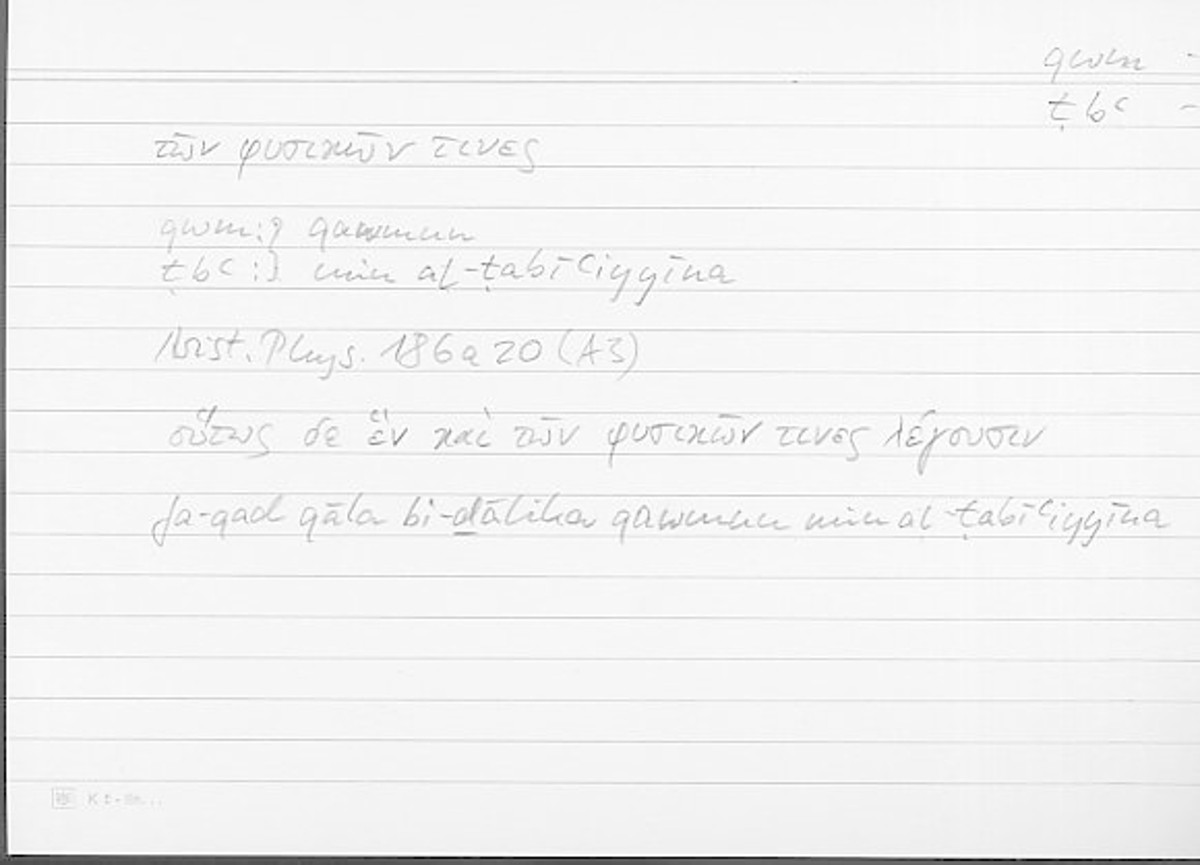 qwm -
ṭbʿ -
τῶν φυσικῶν τινες
qwm:} qawmun
ṭbʿ:} min al-ṭabīʿiyyīna
Arist. Phys. 186a20 (A3)
οὕτως δε ἓν καὶ τῶν φυσικῶν τινες λέγουσιν
fa-qad qāla bi-ḏālika qawmun min al-ṭabīʿiyyīna